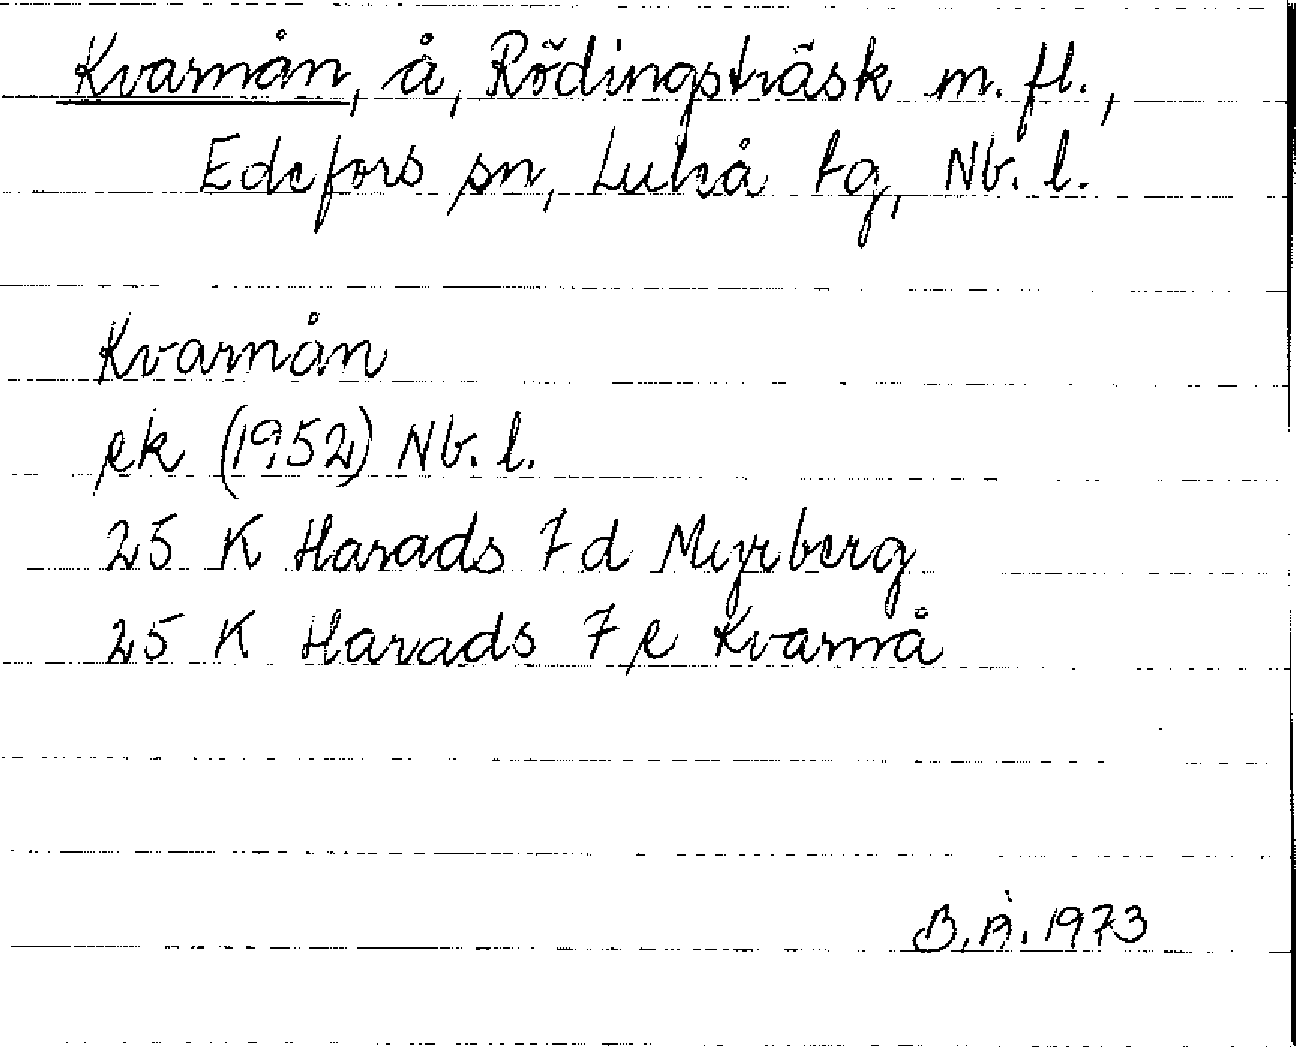 Kvarnån, å, Rödingsträsk m. fl.,
Edefors sn, Luleå tg, Nb. l.
Kvarnån
ek (1952) Nb. l.
25 K Harads 7 d Myrberg
25 K Harads 7 e Kvarnå
B.Å. 1973